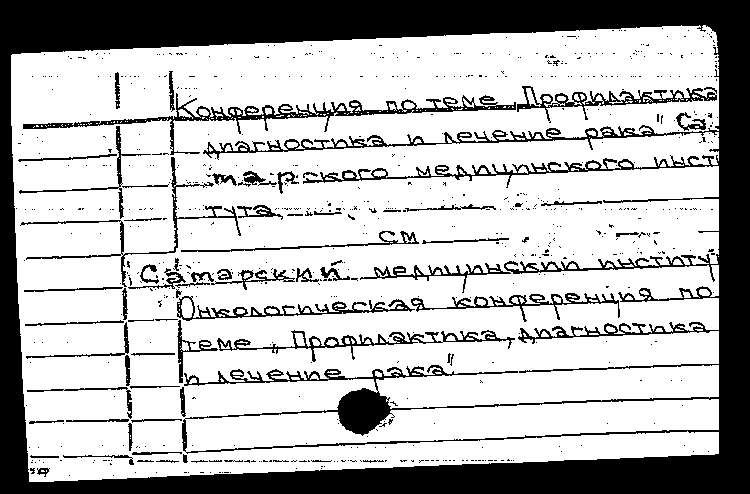 Конференция по теме „Профилактика
диагностика и лечение рака" Са-
марского медицинского инсти
тута
см.
Самарский медицинский институт
Онкологическая конференция по
теме „Профилактика, диагностика
и лечение рака"